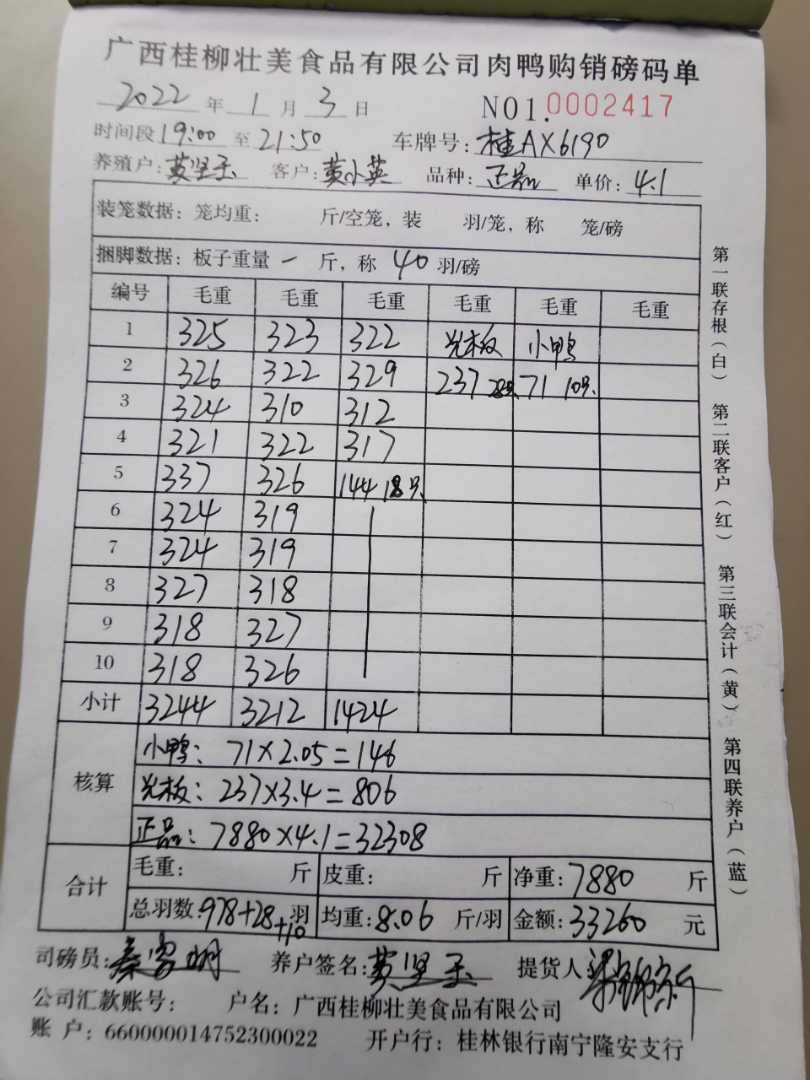 广西桂柳壮美食品有限公司肉鸭购销磅码单
2022 年 1 月 3 日 NO1.0002417
时间段 19:00 至 21:50 车牌号: 桂AX6190
养殖户: 黄坚玉 客户: 黄小英 品种: 正品 单价: 4.1
装笼数据: 笼均重: 斤/空笼, 装 羽/笼, 称 笼/磅
捆脚数据: 板子重量 一 斤, 称 40 羽/磅
编号 毛重 毛重 毛重 毛重 毛重 毛重
1 325 323 322 光板 小鸭
2 326 322 329 237 28只 71 10只
3 324 310 312
4 321 322 317
5 337 326 144 18只
6 324 319
7 324 319
8 327 318
9 318 327
10 318 326
小计 3244 3212 1424
核算
小鸭: 71×2.05=146
光板: 237×3.4=806
正品: 7880×4.1=32308
合计
毛重: 斤 皮重: 斤 净重: 7880 斤
总羽数: 978+28+10 羽 均重: 8.06 斤/羽 金额: 33260 元
司磅员: 养户签名: 黄坚玉 提货人:
公司汇款账号: 户名: 广西桂柳壮美食品有限公司
账 户: 660000014752300022 开户行: 桂林银行南宁隆安支行
第一联存根(白) 第二联客户(红) 第三联会计(黄) 第四联养户(蓝)